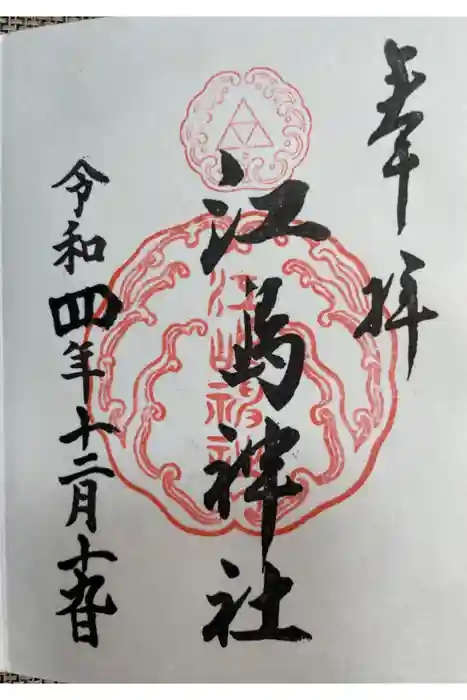 奉拝
江島神社
江島神社
令和四年十二月十九日